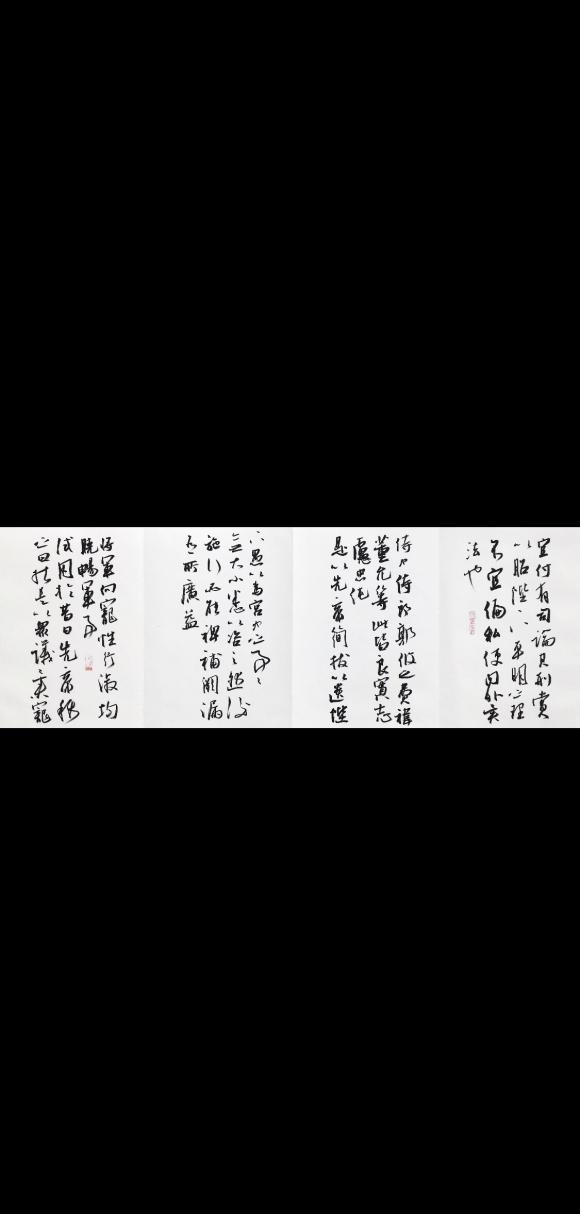 宜付有司論其刑賞
以昭陛下平明之理
不宜偏私使内外異
法也
侍中侍郎郭攸之費禕
董允等此皆良實志
慮忠純
是以先帝簡拔以遺陛
下愚以為宮中之事事
無大小悉以咨之然後
施行必能裨補闕漏
有所廣益
將軍向寵性行淑均
曉暢軍事
試用於昔日先帝稱
之曰能是以衆議舉寵